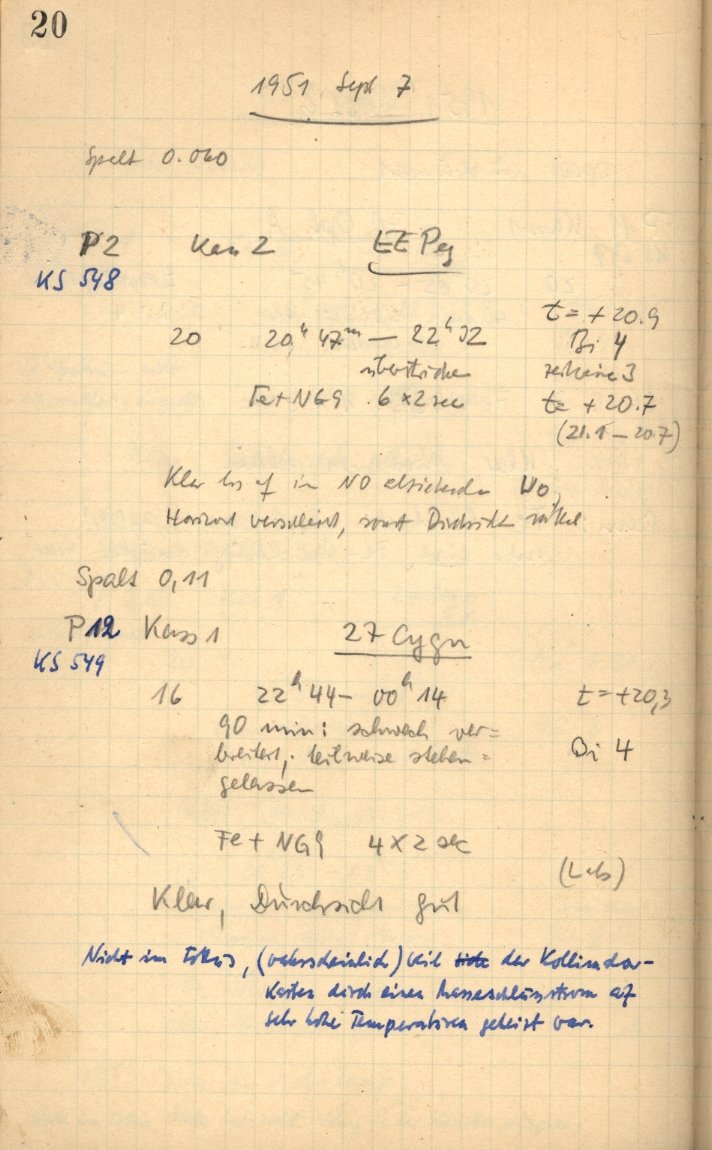 20
1951 Sept 7
Spalt 0.060
P2 Kass 2 EE Peg
KS 548
t = +20.9
20 20h 47m — 22h 32 Bi 4
zeitweise 3
Fe+NG9 6 x 2 sec te +20.7
(21.1 — 20.7)
Klar bis auf im NO
Horizont verschleiert, sonst Durchsicht mittel
Spalt 0,11
P12 Kass 1 27 Cygni
KS 549
16 22h 44 — 00h 14 t = +20,3
90 min: schwach ver=
breitert, teilweise stehen= Bi 4
gelassen
Fe + NG9 4 x 2 sec
Klar, Durchsicht gut
Nicht im Fokus, (wahrscheinlich) weil der Kollimator-
Kasten durch einen Masseschlussstrom auf
sehr hohe Temperaturen geheizt war.